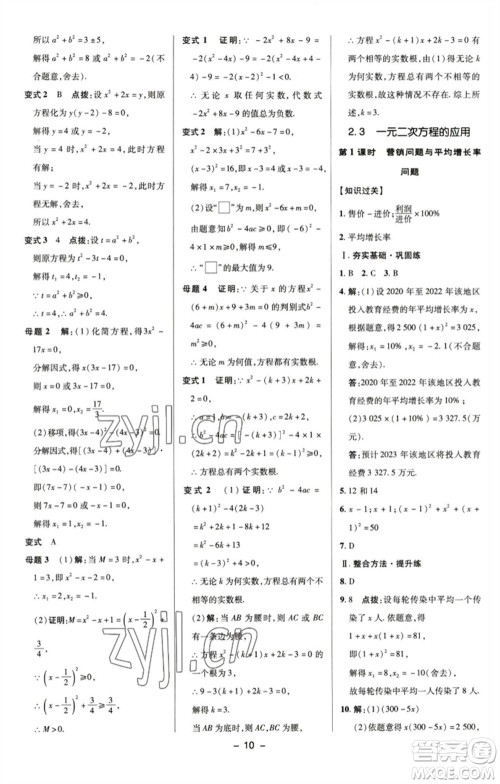 所以 a²+b²+2=±5,
解得 a²+b²=3 或 a²+b²=-7(不
合题意,舍去).
变式 2 B 点拨:设 x²+x=y,则原
方程化为 y(y-2)-8=0,
解得 y=4 或 y=-2,
当 y=4 时,x²+x=4,方程有解;
当 y=-2 时,x²+x=-2,
方程无解,舍去,
所以 x²+x=4.
变式 3 4 点拨:设 t=a²+b²,
则原方程化为 t²-3t-4=0,
解得 t₁=4,t₂=-1,
∵t=a²+b²≥0,
∴t=4,
∴a²+b²=4.
母题 2 解:(1)化简方程,得 3x²-
17x=0,
分解因式,得 x(3x-17)=0,
解得 x₁=0,x₂=17/3.
(2)移项,得(3x-4)²-(4x-3)²=0,
分解因式,得[(3x-4)+(4x-3)]·
[(3x-4)-(4x-3)]=0,
即(7x-7)(-x-1)=0,
则 7x-7=0 或-x-1=0,
解得 x₁=1,x₂=-1.
变式 A
母题 3 (1)解:当 M=3 时,x²-x+
1=3,
解得 x₁=-1,x₂=2.
(2)证明:M=x²-x+1=(x-1/2)²+
3/4,
∵(x-1/2)²≥0,
∴(x-1/2)²+3/4≥3/4,
∴M>0.
变式 1 证明:-2x²+8x-9=
-2(x²-4x)-9=
-2(x²-4x+4-4)-9=
-2(x²-4x+4)+8-9=
-2(x-2)²-1.
无论 x 取任何实数,代数式
-2x²+8x-9 的值总为负数.
变式 2 解:(1)根据题意,得
x²-6x=0,
x²-6x+9=9,
(x-3)²=9,
x-3=±3,
∴x₁=6,x₂=0.
(2)设□为 m,
由题意知 b²-4ac≥0,即(-6)²-
4×1×m≥0,
解得 m≤9,
∴“□”的最大值为 9.
母题 4 证明:∵关于 x 的方程 x²-
(6+m)x+9+m=0 的判别式 b²-
4ac=(6+m)²-4(9+m)=m²+
8m=m(m+8),
∵m>0,
∴b²-4ac>0,
∴方程有两个不相等的实数根.
变式 1 证明:x²-(k+3)x+2k+
2=0,
∵b²-4ac=[-(k+3)]²-4×1×
(2k+2)=k²-2k+1=(k-1)²≥0,
∴方程总有两个实数根.
变式 2 (1)证明:∵b²-4ac=
(k+1)²-4(2k-3)
=k²+2k+1-8k+12
=k²-6k+13
=(k-3)²+4>0,
∴无论 k 为何实数,方程总有两
个不相等的实数根.
(2)解:当 AB 为腰时,则 AC 或
BC 有一条边为腰,
x²-(k+1)x+2k-3=0 的解
为 3,
∴9-3(k+1)+2k-3=0,
解得 k=3.
当 AB 为底时,则 AC,BC 为腰,
方程 x²-(k+1)x+2k-3=0 有
两个相等的实数根,由(1)得,无
论 k 为何实数,方程总有两个不
相等的实数根,故这种情况不
存在.综上所述,
k=3.
2.3 一元二次方程的应用
第 1 课时 营销问题与平均增长率
问题
【知识过关】
1. 售价-进价;利润/进价×100%
2. 平均增长率
Ⅰ 夯实基础·巩固练
1. B 2. C 3. B
4. 解:(1)设 2020 年至 2022 年该地区
投入教育经费的年平均增长率为 x,
根据题意,得 2 500(1+x)²=3 025,
解得 x₁=10%,x₂=-2.1(不合题
意,舍去).
答:2020 年至 2022 年该地区投入
教育经费的年平均增长率为 10%.
(2)3 025×(1+10%)=3 327.5(万
元).
答:预计 2023 年该地区将投入教育
经费 3 327.5 万元.
5. 12 和 14
6. x-1;x+1;(x-1)²+x²+(x+
1)²=50
7. D
Ⅱ 整合方法·提升练
8. D
9. 8 点拨:设每轮传染中平均一个人
传染了 x 人,
依题意,得
1+x+x(1+x)=81,
解得 x₁=8,x₂=-10(不合题意,
舍去).
故每轮传染中平均一个人传染了 8 人.
10. 解:(1)(300-5x)
(2)依题意,得 x(300-5x)=2 500,
- 10 -
zyjl.cn
zyjl.cn
答案圈